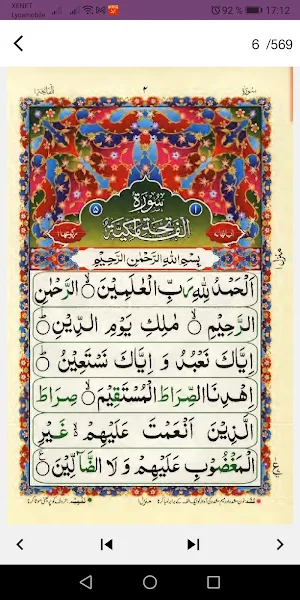 XENET
Lycamobile
92 %
17:12
6 /569
سُورَةُ
٢
اَلْفَاتِحَة ١
سُوْرَةُ
١
٥
الْفَاتِحَةِ مَكِّيَّةٌ
بِسْمِ اللّٰهِ الرَّحْمٰنِ الرَّحِيْمِ
اَلْحَمْدُ لِلّٰهِ رَبِّ الْعٰلَمِيْنَ ۙ الرَّحْمٰنِ
الرَّحِيْمِ ۙ مٰلِكِ يَوْمِ الدِّيْنِ ؕ
اِيَّاكَ نَعْبُدُ وَ اِيَّاكَ نَسْتَعِيْنُ ؕ
اِهْدِنَا الصِّرَاطَ الْمُسْتَقِيْمَ ۙ صِرَاطَ
الَّذِيْنَ اَنْعَمْتَ عَلَيْهِمْ ۙ غَيْرِ
الْمَغْضُوْبِ عَلَيْهِمْ وَ لَا الضَّآلِّيْنَ
منزل